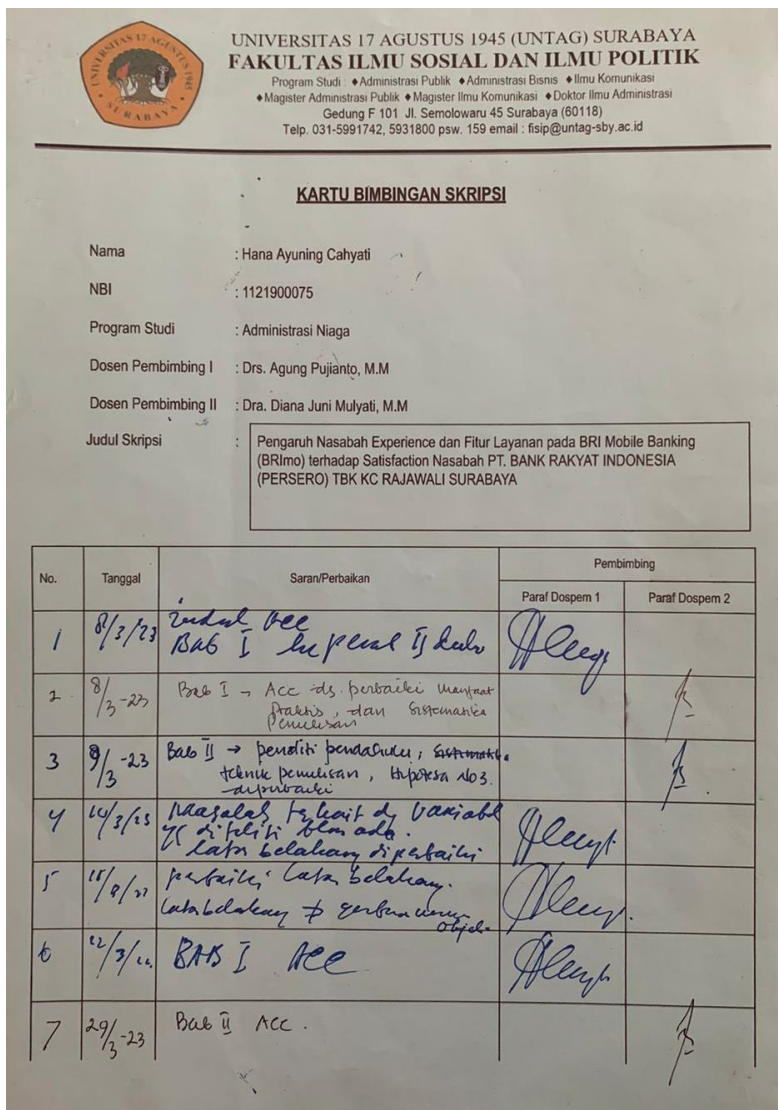 UNIVERSITAS 17 AGUSTUS 1945
SURABAYA
UNIVERSITAS 17 AGUSTUS 1945 (UNTAG) SURABAYA
FAKULTAS ILMU SOSIAL DAN ILMU POLITIK
Program Studi : ♦Administrasi Publik ♦Administrasi Bisnis ♦Ilmu Komunikasi
♦Magister Administrasi Publik ♦Magister Ilmu Komunikasi ♦Doktor Ilmu Administrasi
Gedung F 101 Jl. Semolowaru 45 Surabaya (60118)
Telp. 031-5991742, 5931800 psw. 159 email : fisip@untag-sby.ac.id
KARTU BIMBINGAN SKRIPSI
Nama : Hana Ayuning Cahyati
NBI : 1121900075
Program Studi : Administrasi Niaga
Dosen Pembimbing I : Drs. Agung Pujianto, M.M
Dosen Pembimbing II : Dra. Diana Juni Mulyati, M.M
Judul Skripsi : Pengaruh Nasabah Experience dan Fitur Layanan pada BRI Mobile Banking
(BRImo) terhadap Satisfaction Nasabah PT. BANK RAKYAT INDONESIA
(PERSERO) TBK KC RAJAWALI SURABAYA
No. Tanggal Saran/Perbaikan Pembimbing
Paraf Dospem 1 Paraf Dospem 2
1 8/3/23 Judul Acc
Bab I
2 8/3-23 Bab I → Acc dg. perbaiki manfaat
praktis, dan sistematika
penulisan
3 9/3-23 Bab II → peneliti pendahulu, sistematika
teknik penulisan, Hipotesa No 3.
diperbaiki
4 14/3/23 Masalah terkait dg variabel
yg diteliti blm ada.
latar belakang diperbaiki
5 perbaiki latar belakang.
latar belakang
objek
6 BAB I Acc
7 29/3-23 Bab II Acc.